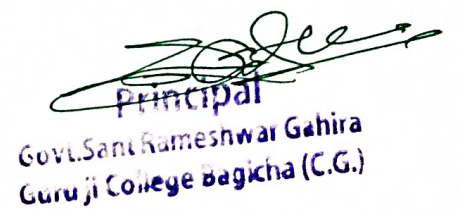 Principal
Govt.Sant Rameshwar Gahira
Guru ji College Bagicha (C.G.)